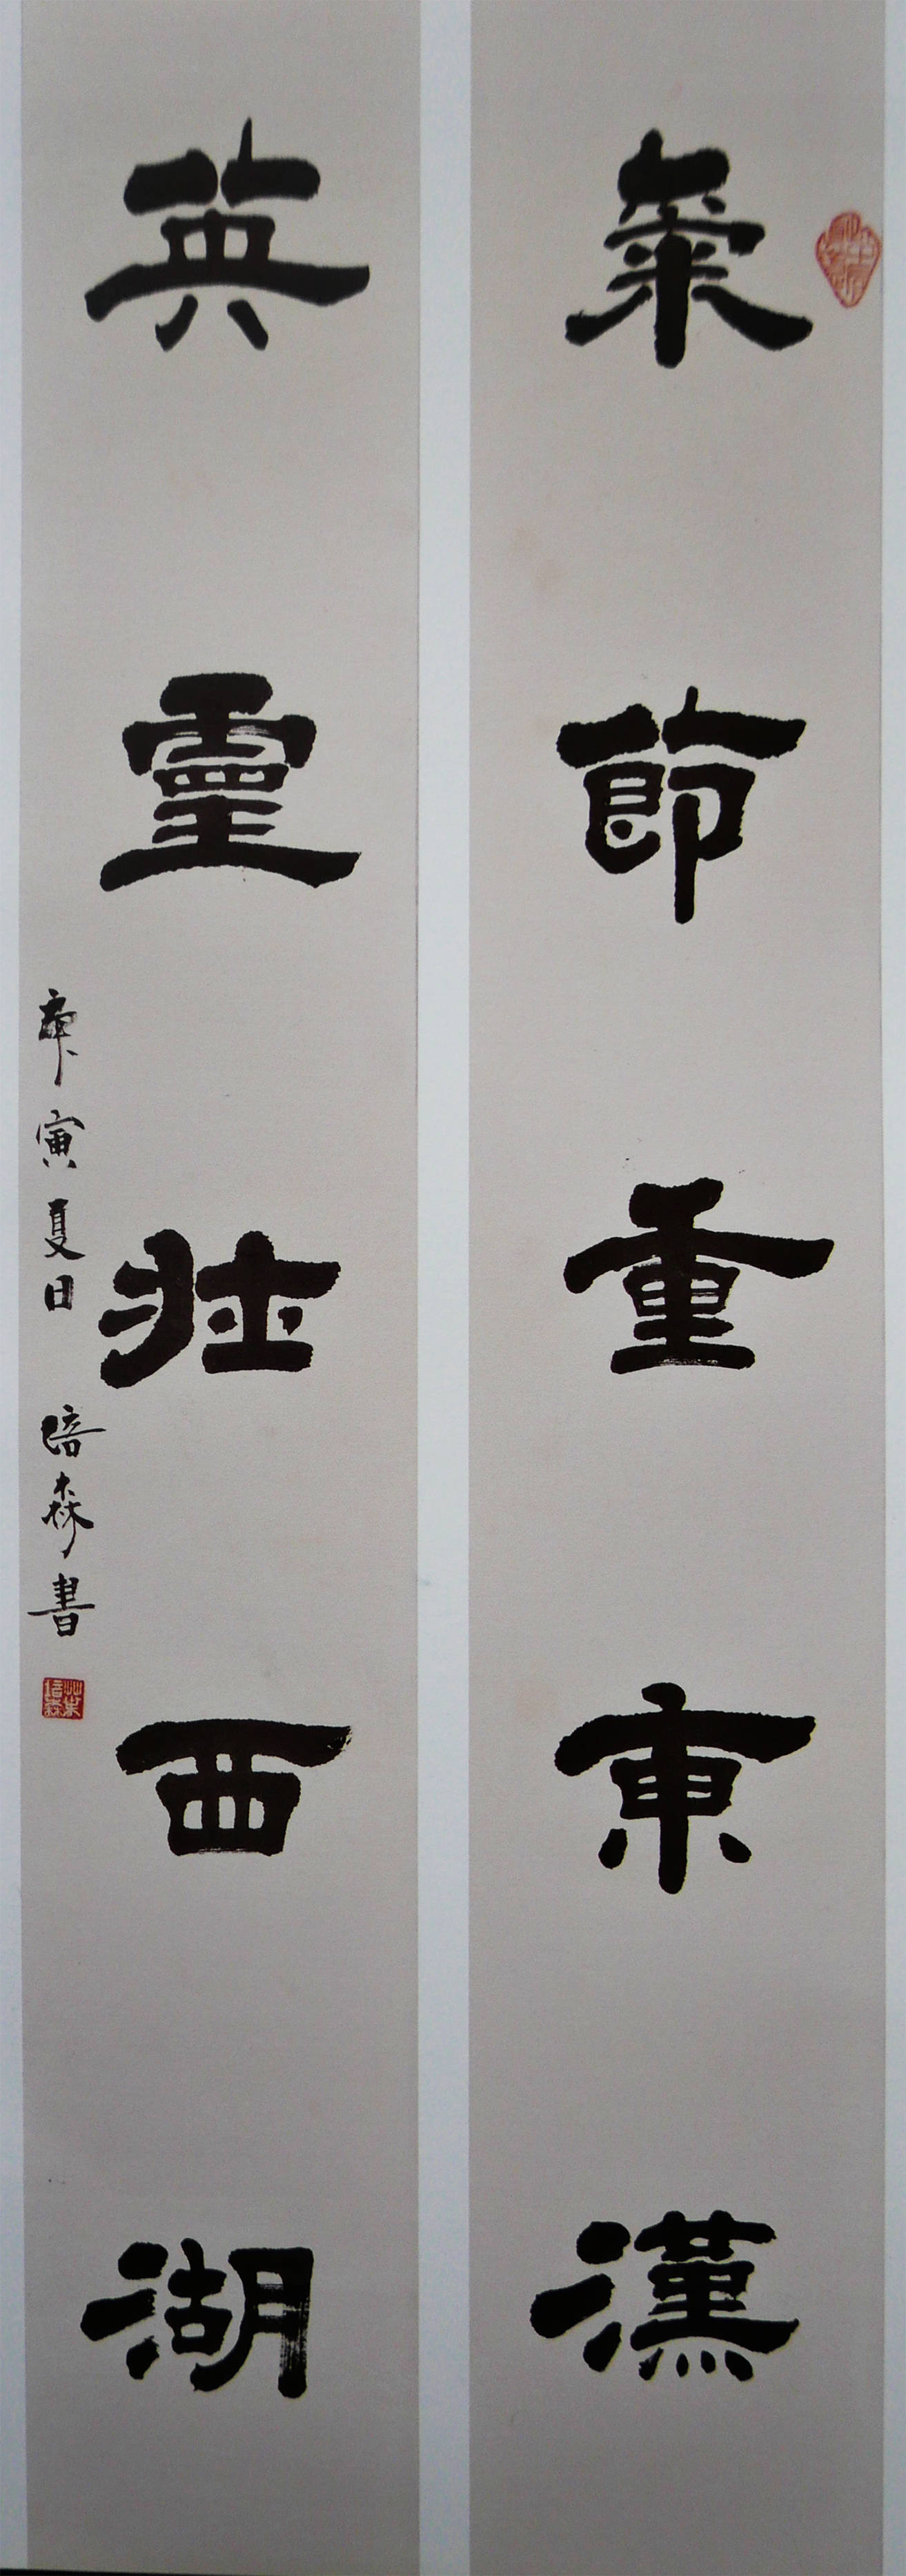 氣節重東漢
英靈壯西湖
庚寅夏日 培森書
葉培森